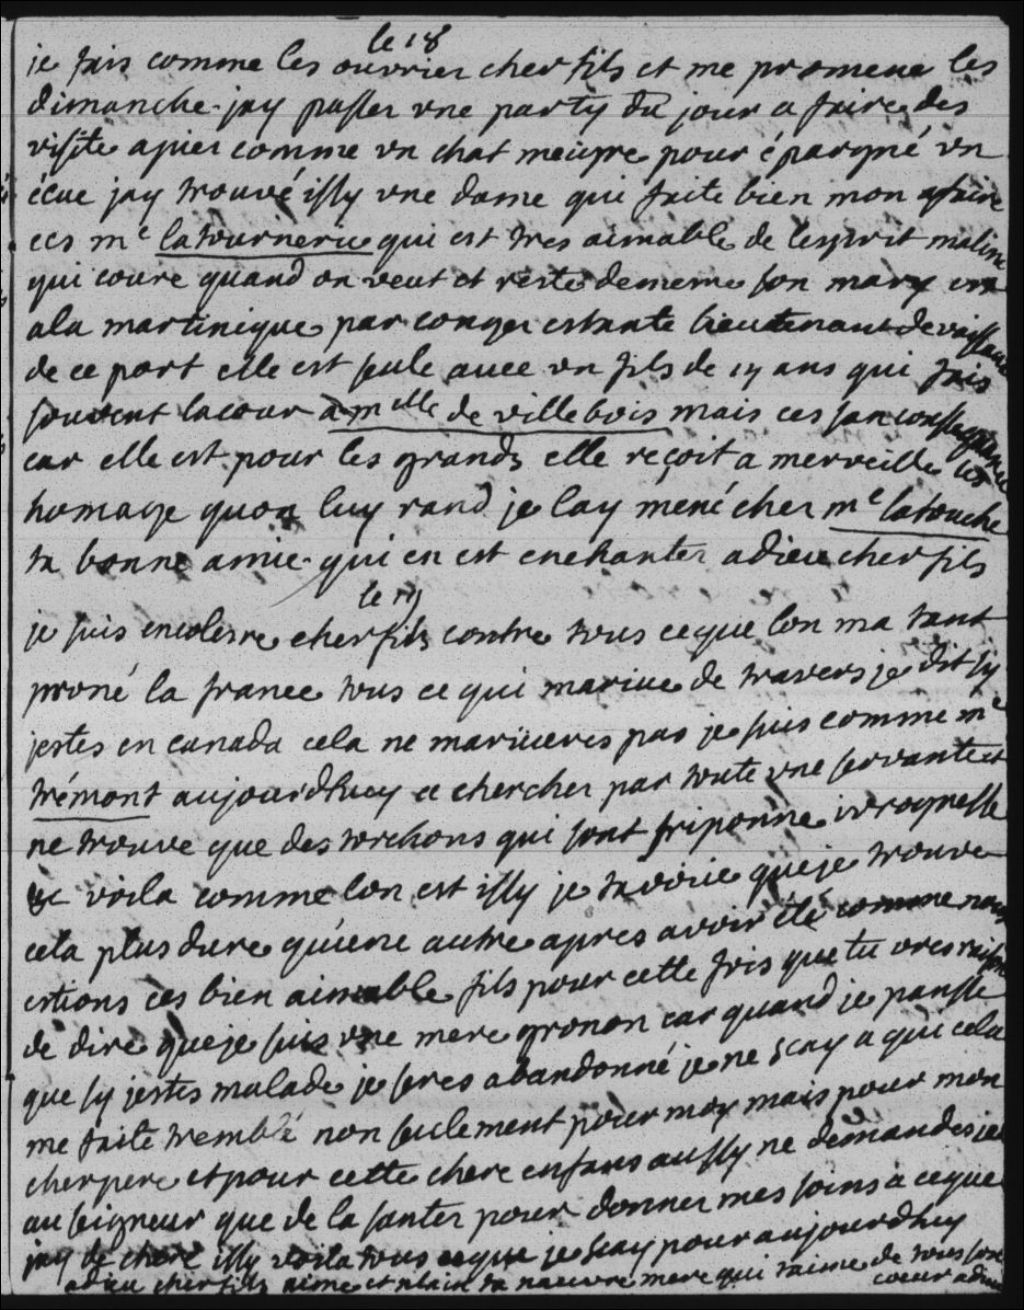 le 18
je fais comme les ouvrier cher fils et me promene les
dimanche jay passer une party du jour a faire des
visite apier comme un chat meigre pour épargné un
écue jay trouvé issy une dame qui faite bien mon afaire
ces me latournerie qui est tres aimable de lesprit maline
qui coure quand on veut et reste de meme son mary
ala martinique par conger estante lieutenant de vaissaux
de ce port elle est seule avec un fils de 14 ans qui fais
souvent lacour a melle de villebois mais ces san consequence
car elle est pour les grands elle reçoit a merveille les
homage quon luy rand je lay mené cher me latouche
ta bonne amie qui en est enchanter adieu cher fils
le 19
je suis encolerre cher fils contre tous ceque lon ma tant
proné la france tous ce qui marive de travers je dit sy
jestes en canada cela ne mariveres pas je suis comme me
trémont aujourdhuy a chercher par toute une servante et
ne trouve que des torchons qui sont friponne ivrognesse
&c voila comme lon est issy je tavoue que je trouve
cela plus dure quiene autre apres avoir été comme nous
estions ces bien aimable fils pour cette fois que tu ores raison
de dire que je suis une mere gronon car quand je pansse
que sy jestes malade je seres abandonné je ne scay a qui cela
me faite tremblé non seulement pour moy mais pour mon
cher pere et pour cette chere enfans aussy ne demandes je
au seigneur que de la santer pour donner mes soins a ceque
jay de chere issy voila tous ceque je scay pour aujourdhuy
adieu cher fils aime et plain ta pauvre mere qui taime de tous son
coeur adieu